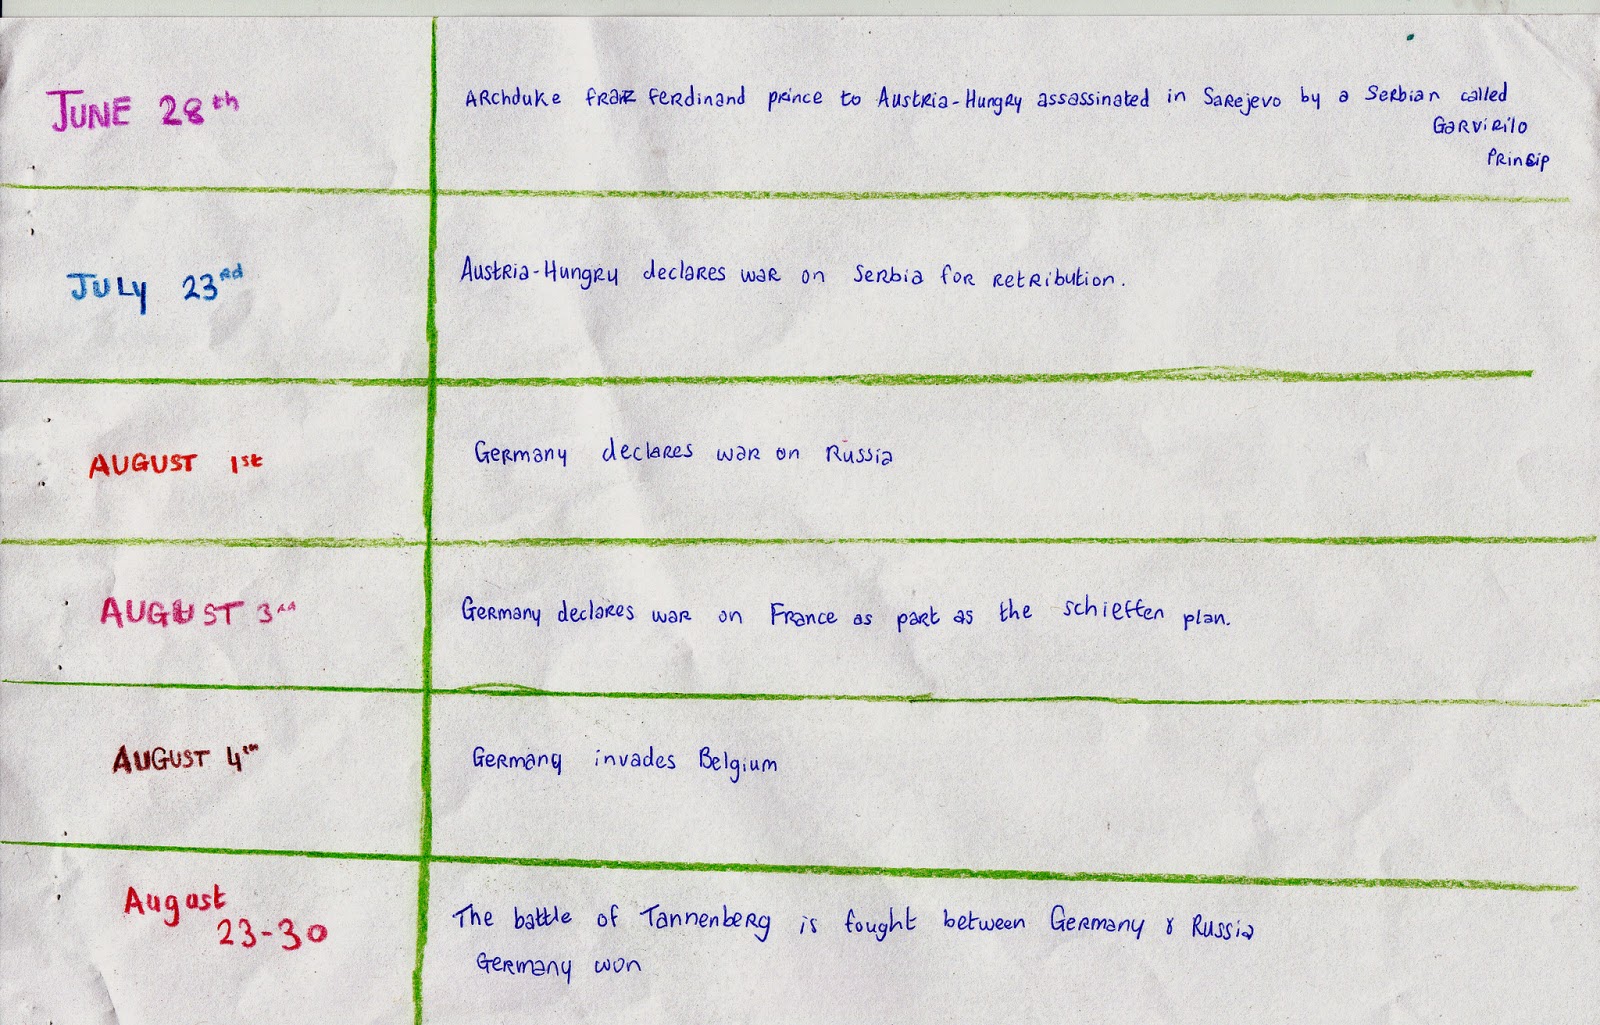 JUNE 28th
Archduke Franz Ferdinand prince to Austria-Hungry assassinated in Sarejevo by a Serbian called
Garvirilo
Princip
JULY 23rd
Austria-Hungry declares war on Serbia for retribution.
AUGUST 1st
Germany declares war on Russia
AUGUST 3rd
Germany declares war on France as part as the schieffen plan.
AUGUST 4th
Germany invades Belgium
August
23-30
The battle of Tannenberg is fought between Germany & Russia
Germany won